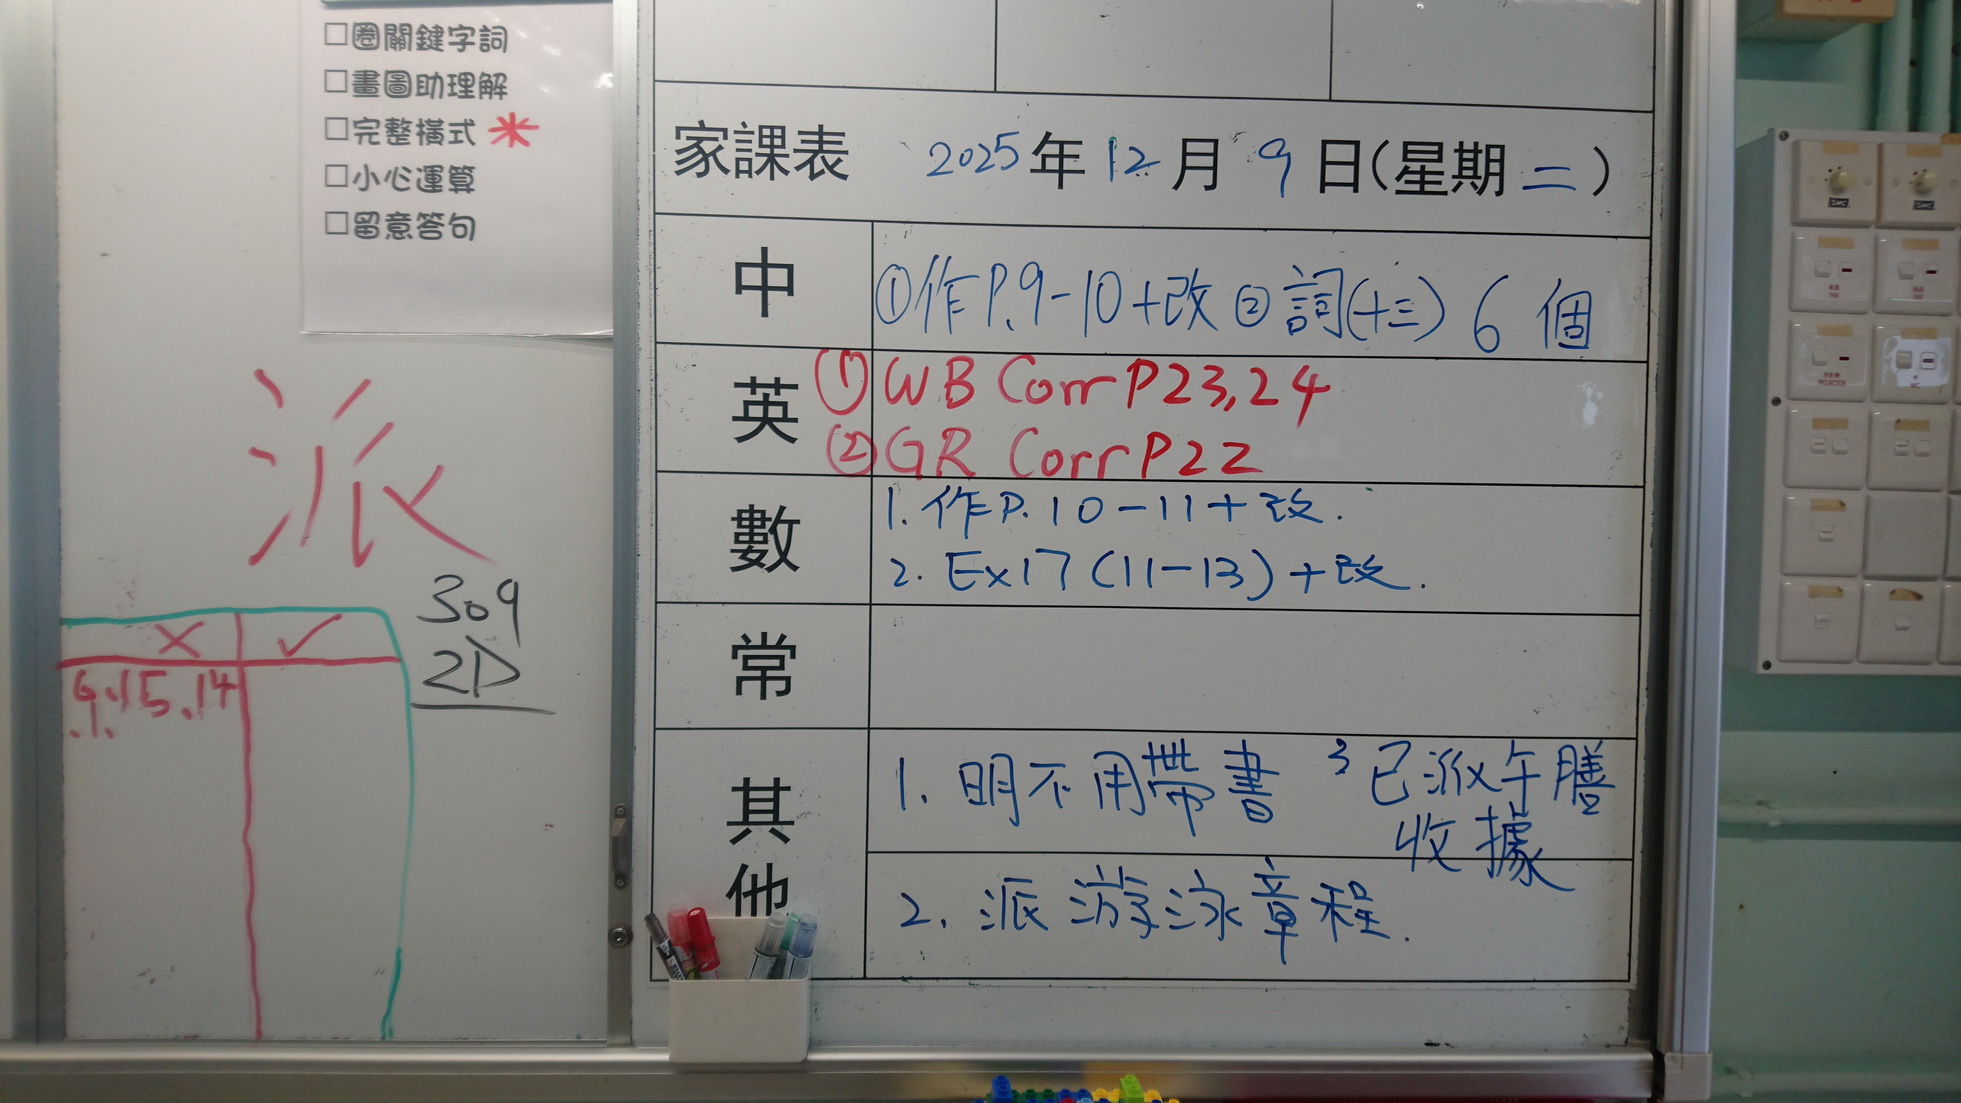 □圈關鍵字詞
□畫圖助理解
□完整橫式 *
□小心運算
□留意答句
派
309
2D
× ✓
9.15.14
.1.
家課表 2025年12月9日(星期二)
中 ①作P.9-10+改 ②詞(十三) 6個
英 ① WB Corr P23,24
② GR Corr P22
數 1. 作P.10-11+改.
2. Ex17 (11-13)+改.
常
其他 1. 明不用帶書 3 已派午膳
收據
2. 派游泳章程.